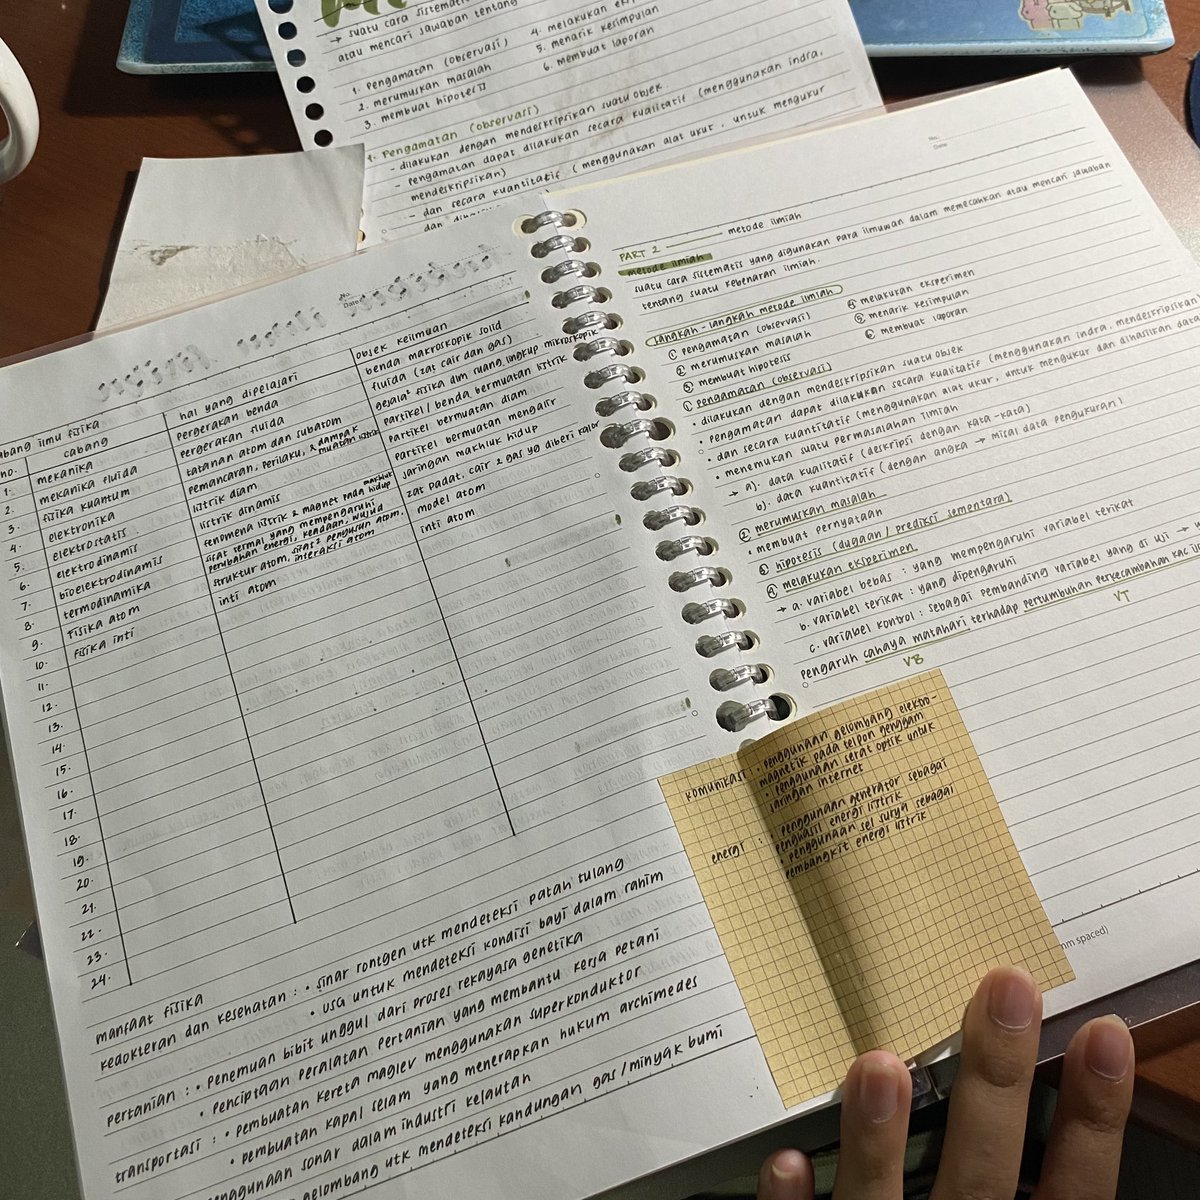 → suatu cara sistemati
atau mencari jawaban tentang
1. pengamatan (observasi)
2. merumuskan masalah
3. membuat hipotesis
4. melakukan
5. menarik kesimpulan
6. membuat laporan
1. Pengamatan (observasi)
- dilakukan dengan mendeskripsikan suatu objek
- pengamatan dapat dilakukan secara kualitatif (menggunakan indra,
mendeskripsikan)
- dan secara kuantitatif (menggunakan alat ukur, untuk mengukur
No.
Date
abang ilmu fisika
no. cabang hal yang dipelajari objek keilmuan
1. mekanika pergerakan benda benda makroskopik solid
2. mekanika fluida pergerakan fluida fluida (zat cair dan gas)
3. fisika kuantum tatanan atom dan subatom gejala² fisika dlm ruang lingkup mikroskopik
4. elektronika pemancaran, perilaku, & dampak muatan listrik partikel / benda bermuatan listrik
5. elektrostatis listrik diam partikel bermuatan diam
6. elektrodinamis listrik dinamis partikel bermuatan mengalir
7. bioelektrodinamis fenomena listrik & magnet pada makhluk hidup jaringan makhluk hidup
8. termodinamika sifat termal yang mempengaruhi perubahan energi, keadaan, wujud zat padat, cair & gas yg diberi kalor
9. fisika atom struktur atom, sifat² penyusun atom, interaksi atom model atom
10. fisika inti inti atom inti atom
11.
12.
13.
14.
15.
16.
17.
18.
19.
20.
21.
22.
23.
24.
manfaat fisika
kedokteran dan kesehatan : • sinar rontgen utk mendeteksi patah tulang
• usg untuk mendeteksi kondisi bayi dalam rahim
pertanian : • Penemuan bibit unggul dari proses rekayasa genetika
• Penciptaan peralatan pertanian yang membantu kerja petani
transportasi : • pembuatan kereta maglev menggunakan superkonduktor
• pembuatan kapal selam yang menerapkan hukum archimedes
nggunaan sonar dalam industri kelautan
gelombang utk mendeteksi kandungan gas/minyak bumi
No.
Date
PART 2 metode ilmiah
metode ilmiah
suatu cara sistematis yang digunakan para ilmuwan dalam memecahkan atau mencari jawaban
tentang suatu kebenaran ilmiah.
langkah-langkah metode ilmiah
① pengamatan (observasi)
② merumuskan masalah
③ membuat hipotesis
④ melakukan eksperimen
⑤ menarik kesimpulan
⑥ membuat laporan
① pengamatan (observasi)
• dilakukan dengan mendeskripsikan suatu objek
• Pengamatan dapat dilakukan secara kualitatif (menggunakan indra, mendeskripsikan
• dan secara kuantitatif (menggunakan alat ukur, untuk mengukur dan dihasilkan data
• menemukan suatu permasalahan ilmiah
→ a). data kualitatif (deskripsi dengan kata-kata)
b). data kuantitatif (dengan angka → misal data pengukuran)
② merumuskan masalah
• membuat pernyataan
③ hipotesis (dugaan / prediksi sementara)
④ melakukan eksperimen
→ a. variabel bebas : yang mempengaruhi variabel terikat
b. variabel terikat : yang dipengaruhi
c. variabel kontrol : sebagai pembanding variabel yang di uji →
Pengaruh cahaya matahari terhadap pertumbuhan perkecambahan kac
VB VT
komunikasi : • penggunaan gelombang elektro-
magnetik pada telpon genggam
• penggunaan serat optik untuk
jaringan internet
energi : • penggunaan generator sebagai
penghasil energi listrik
• penggunaan sel surya sebagai
pembangkit energi listrik
spaced)